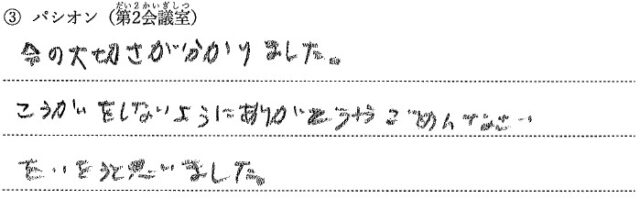 ③ パシオン（第2会議室）
今の大切さが分かりました。
こうかいをしないようにありがとうやごめんなさい
をいおうと思いました。